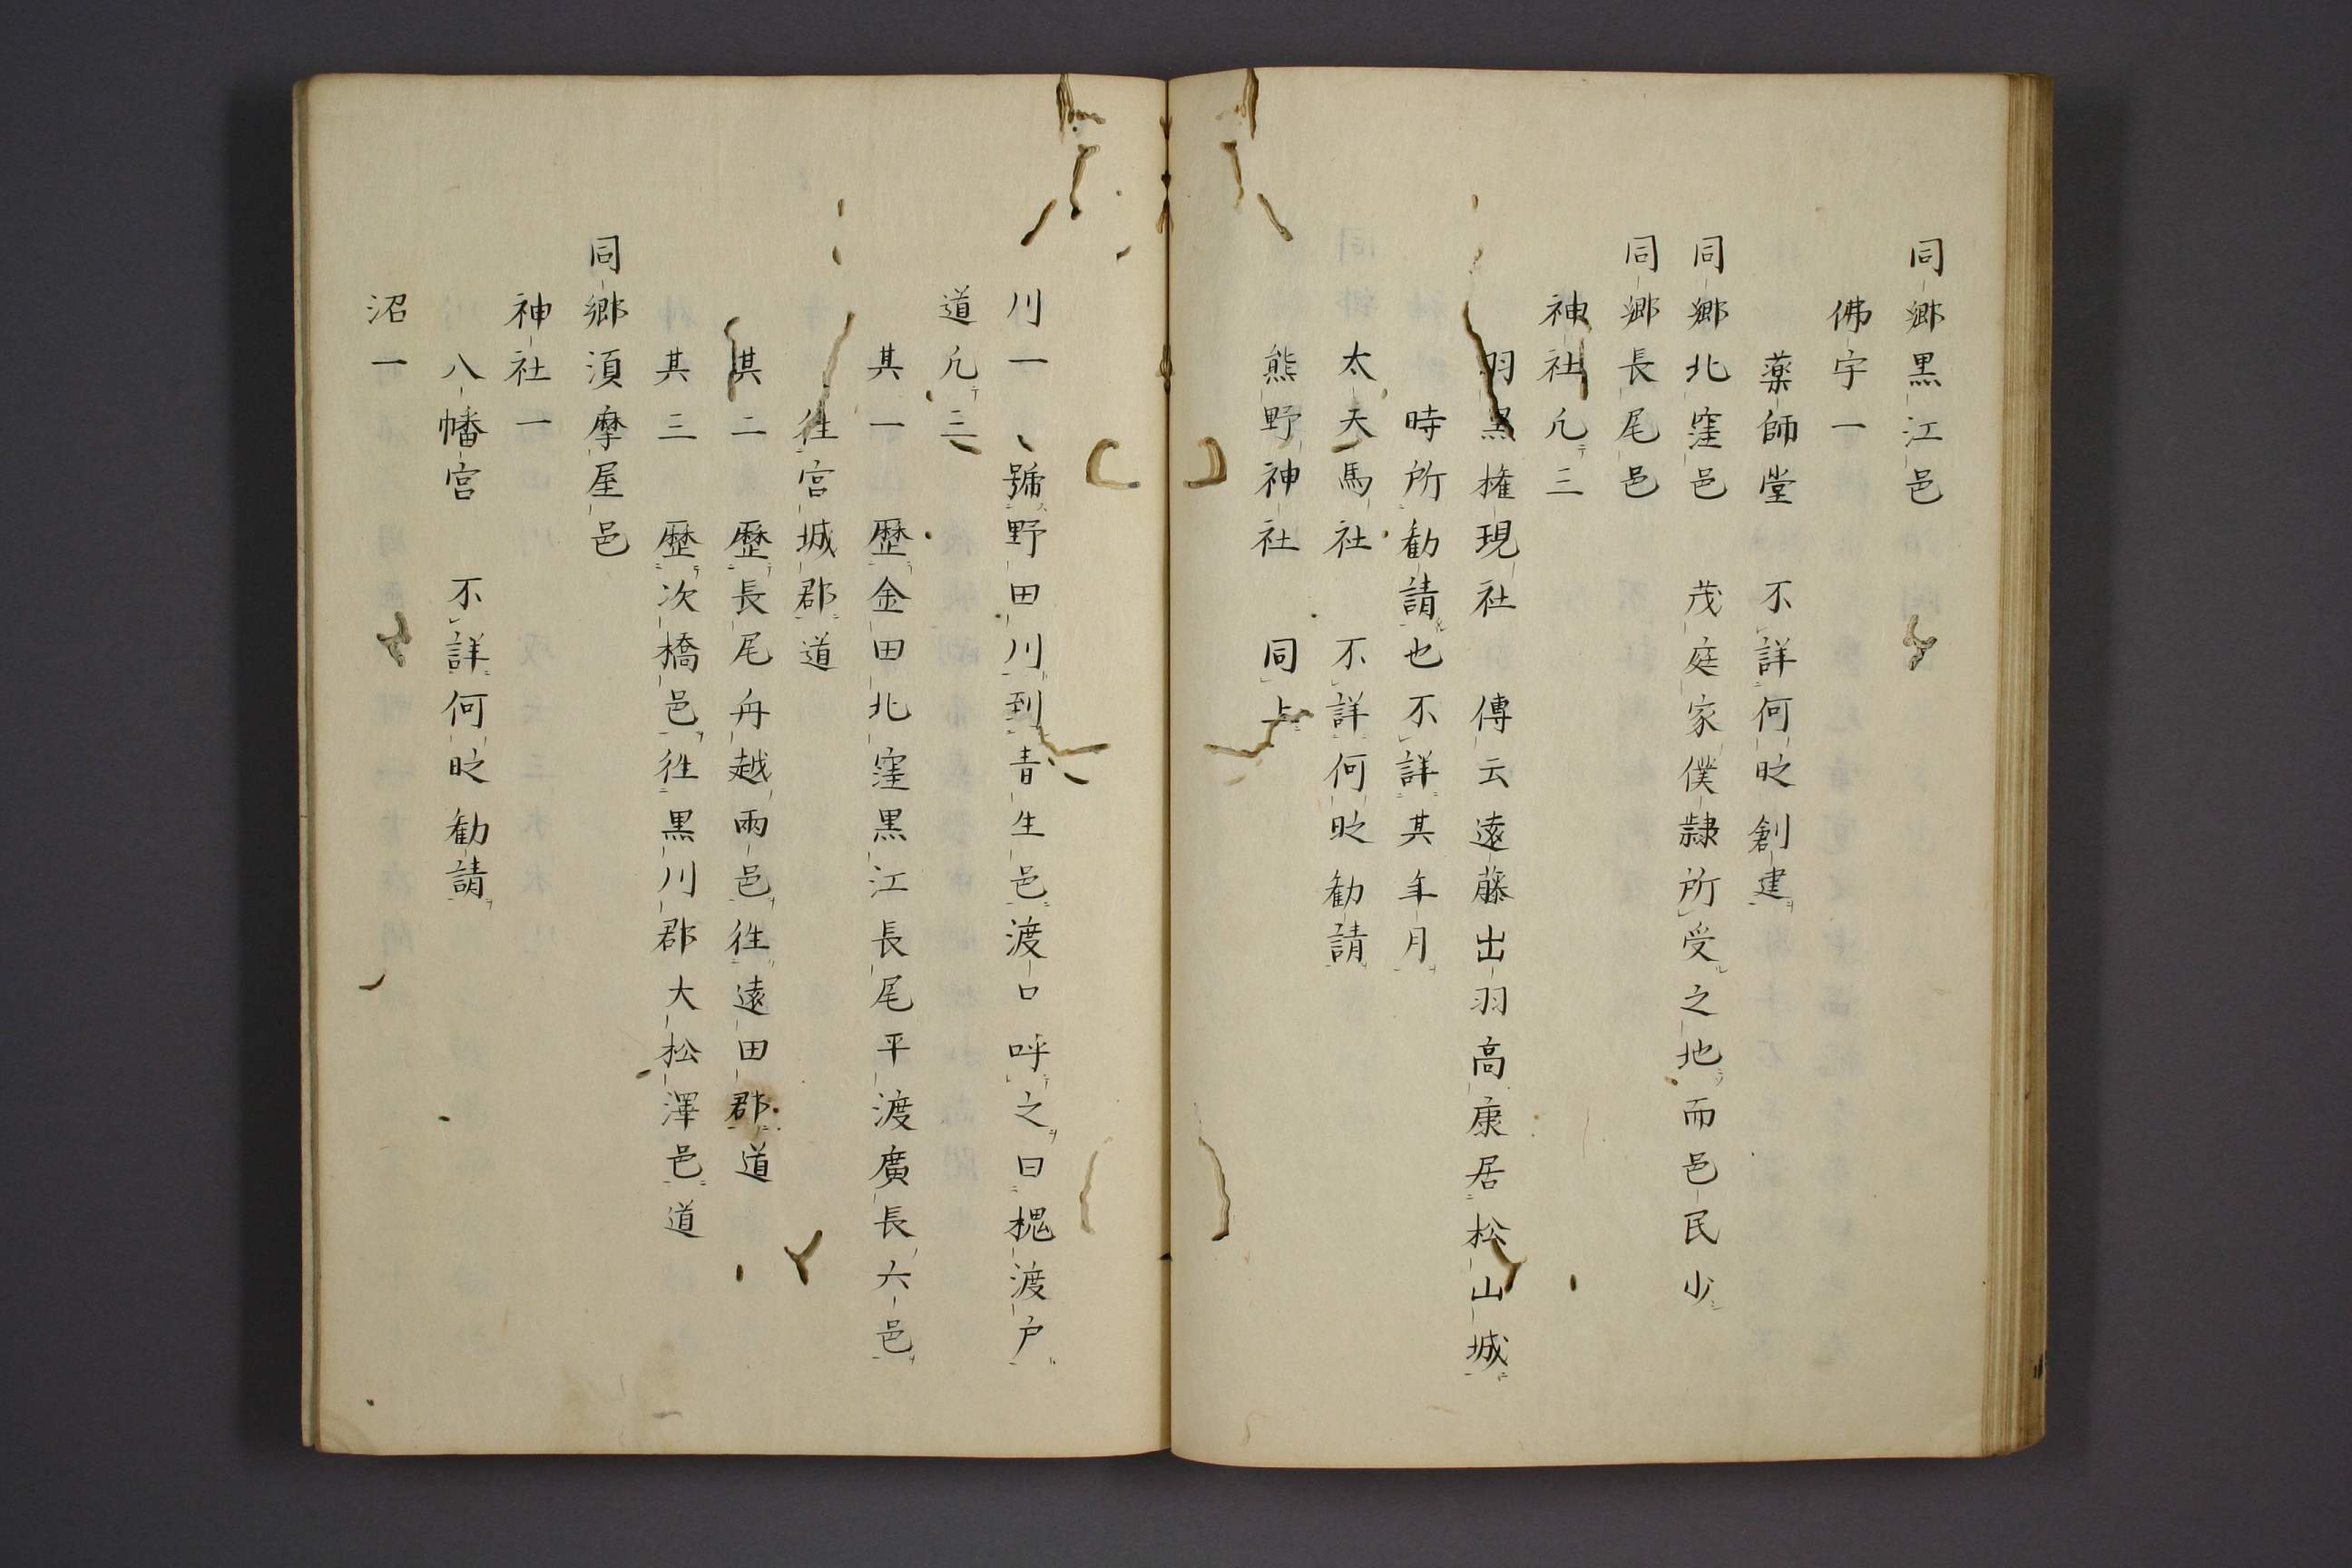 同郷黒江邑
佛宇一
薬師堂　不詳何時創建
同郷北窪邑　茂庭家僕隷所受之地而邑民少
同郷長尾邑
神社凢三
羽黒権現社　傳云遠藤出羽高康居松山城
時所勧請也不詳其年月
太天馬社　不詳何時勧請
熊野神社　同上
川一　號野田川到青生邑渡口呼之曰槐渡戸
道凢三
其一　歴金田北窪黒江長尾平渡廣長六邑
徃宮城郡道
其二　歴長尾舟越兩邑徃遠田郡道
其三　歴次橋邑徃黒川郡大松澤邑道
同郷湏摩屋邑
神社一
八幡宮　不詳何時勧請
沼一